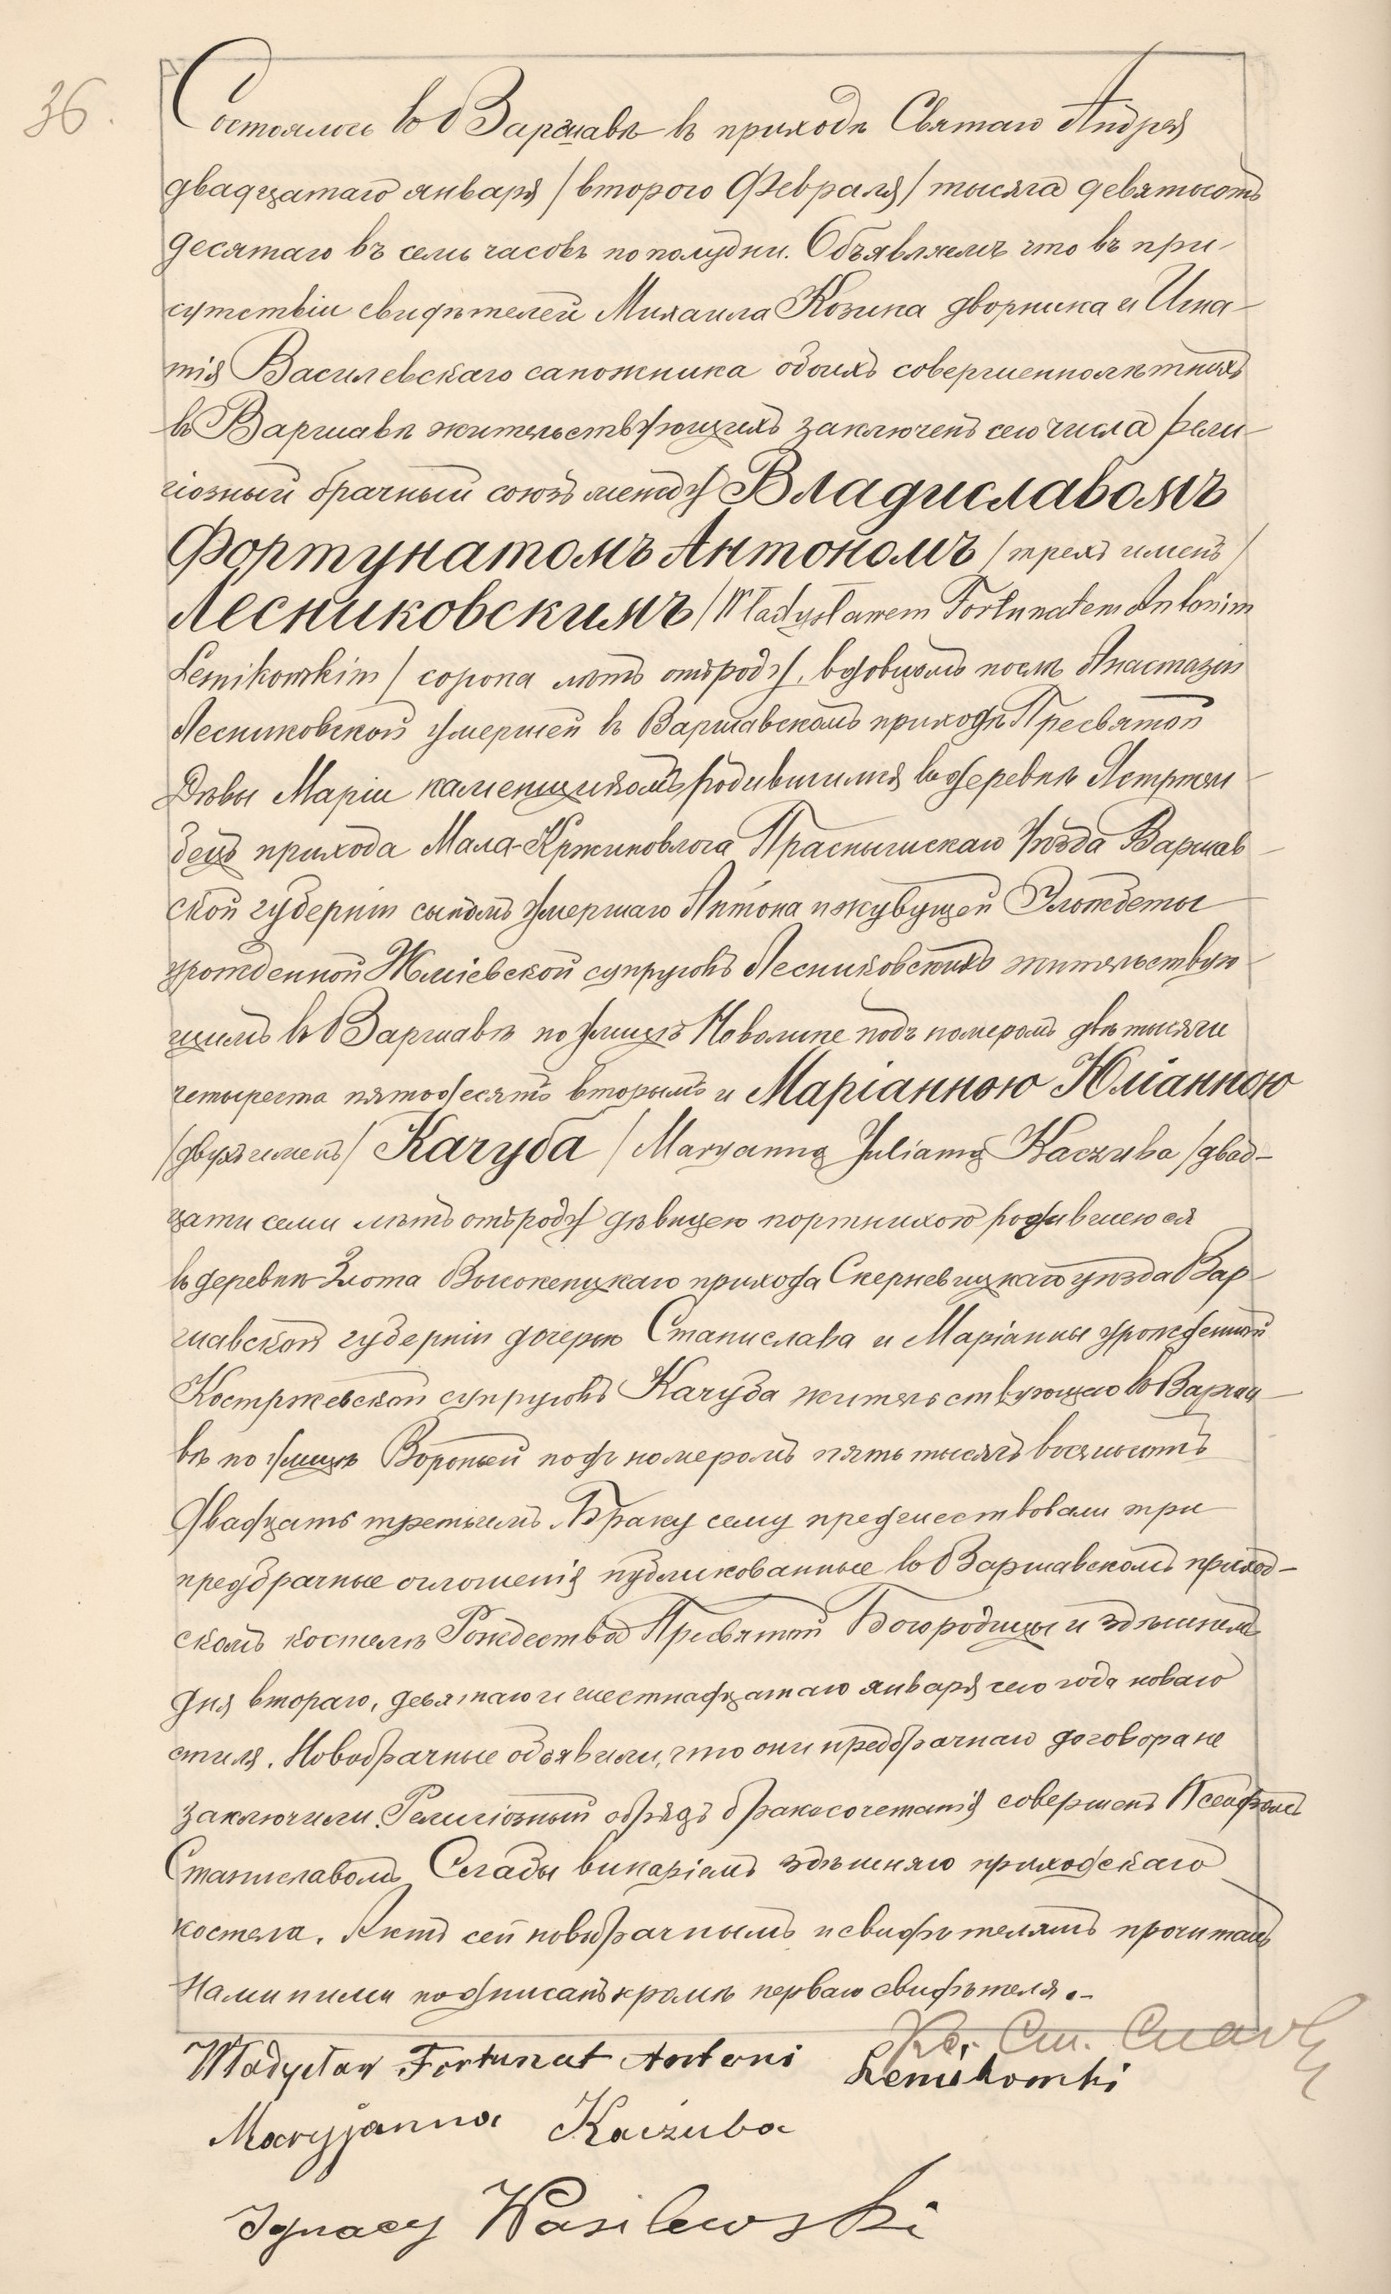 36.
Состоялось въ Варшавѣ въ приходѣ Святаго Андрея
двадцатаго января /второго Февраля/ тысяча девятьсотъ
десятаго въ семь часовъ пополудни. Объявляемъ что въ при-
сутствіи свидѣтелей Михаила Козика дворника и Игна-
тія Василевскаго сапожника обоихъ совершеннолѣтнихъ
въ Варшавѣ жительствующихъ заключенъ сего числа рели-
гіозный брачный союзъ между Владиславомъ
Фортунатомъ Антономъ /трехъ именъ/
Лесниковскимъ /Władysławem Fortunatem Antonim
Lesnikowskim/ сорока лѣтъ отъ роду, вдовцомъ послѣ Анастазіи
Лесниковской умершей въ Варшавскомъ приходѣ Пресвятой
Дѣвы Маріи каменщикомъ родившимся въ деревнѣ Ястржем-
бецъ прихода Мала-Кржиновлога Праснышскаго уѣзда Варшав-
ской губерніи сыномъ умершаго Антона и живущей Эльжбеты
урожденной Жміевской супруговъ Лесниковскихъ жительствую-
щимъ въ Варшавѣ по улицѣ Новолипе подъ номеромъ двѣ тысячи
четыреста пятьдесятъ вторымъ и Маріанною Юліанною
/двухъ именъ/ Качуба /Maryanną Julianną Kaczuba/ двад-
цати семи лѣтъ отъ роду дѣвицею портнихою родившеюся
въ деревнѣ Злота Высокеницкаго прихода Скерневицкаго уѣзда Вар-
шавской губерніи дочерью Станислава и Маріанны урожденной
Костржевской супруговъ Качуба жительствующею въ Варша-
вѣ по улицѣ Вороньей подъ номеромъ пять тысячъ восемьсотъ
двадцать третьимъ. Браку сему предшествовали три
предбрачные оглошенія публикованные въ Варшавскомъ приход-
скомъ костелѣ Рождества Пресвятой Богородицы и здѣшнемъ
дня втораго, девятаго и шестнадцатаго января сего года новаго
стиля. Новобрачные объявили, что они предбрачнаго договора не
заключили. Религіозный обрядъ бракосочетанія совершенъ Ксендзомъ
Станиславомъ викаріемъ здѣшняго приходскаго
костела. Актъ сей новобрачнымъ и свидѣтелямъ прочитанъ
Нами и ими подписанъ кромѣ перваго свидѣтеля.-
Кс. Ст.
Władysław Fortunat Antoni Lesnikowski
Maryjanna Kaczuba
Ignacy Wasilewski